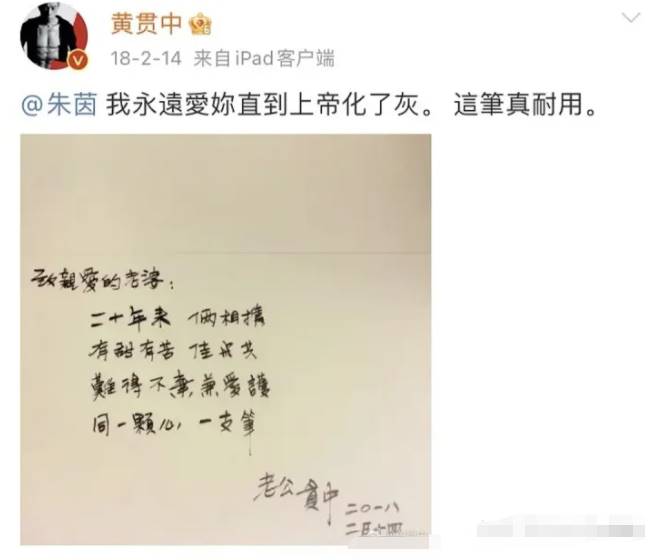 黄贯中
18-2-14 来自iPad客户端
@朱茵 我永遠愛妳直到上帝化了灰。 這筆真耐用。
致親愛的老婆：
二十年來 倆相擕
有甜有苦 佳
難得不棄兼愛護
同一顆心, 一支筆
老公貫中
二〇一八
二月十四